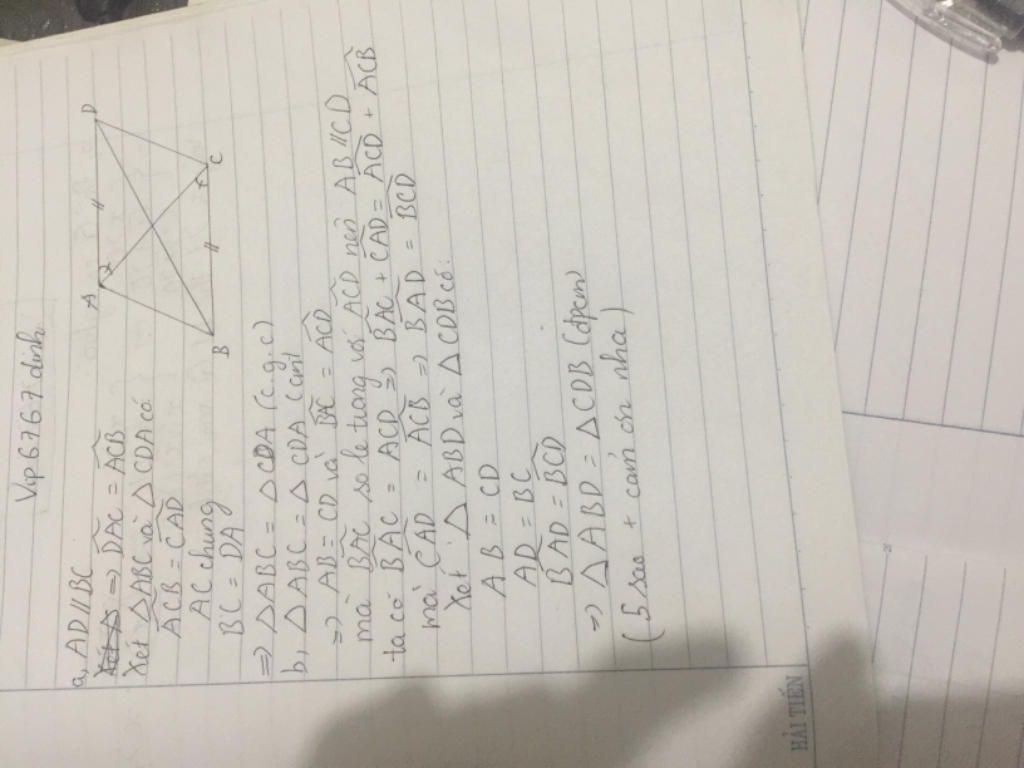 Vip6767 dinh
a, AD // BC
⇒ \widehat{DAC} = \widehat{ACB}
Xét △ABC và △CDA có
\widehat{ACB} = \widehat{CAD}
AC chung
BC = DA
⇒ △ABC = △CDA (c.g.c)
b, △ABC = △CDA (cmt)
⇒ AB = CD và \widehat{BAC} = \widehat{ACD}
mà \widehat{BAC} so le trong với \widehat{ACD} nên AB // CD
ta có \widehat{BAC} = \widehat{ACD} ⇒ \widehat{BAC} + \widehat{CAD} = \widehat{ACD} + \widehat{ACB}
mà \widehat{CAD} = \widehat{ACB} ⇒ \widehat{BAD} = \widehat{BCD}
Xét △ABD và △CDB có:
AB = CD
AD = BC
\widehat{BAD} = \widehat{BCD}
⇒ △ABD = △CDB (đpcm)
(5 sao + cảm ơn nha)
A
D
B
C
HẢI TIẾN